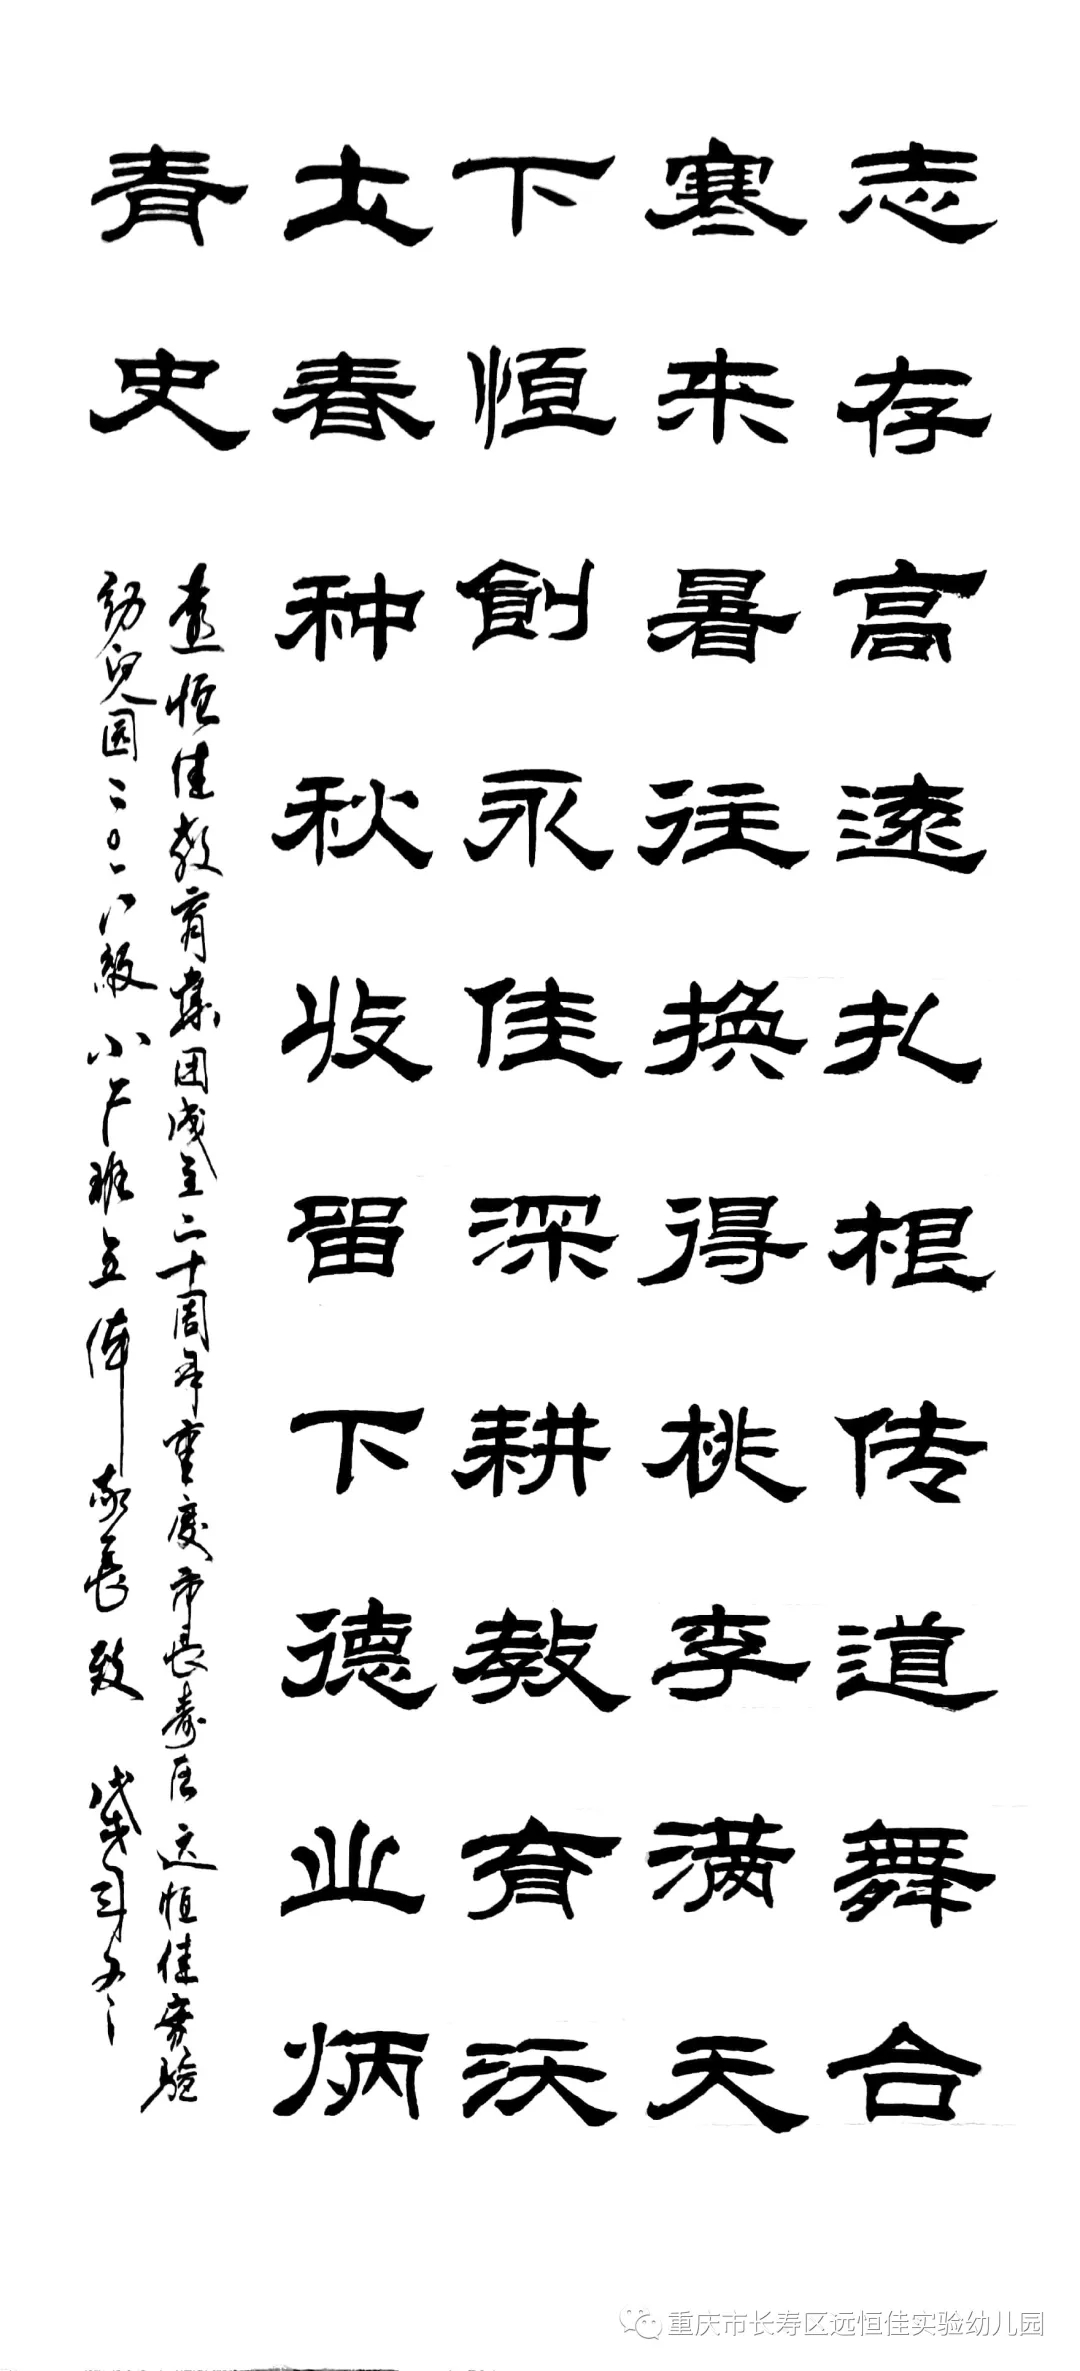 志存高遠扎根传道舞台
寒来暑往換得桃李满天
下恒創永佳深耕教育沃
土春种秋收留下德业炳
青史
遠恒佳教育集团成立二十周年重庆市長寿区远恒佳实验
幼兒园二0一八級小二班全体家長致
重庆市长寿区远恒佳实验幼儿园